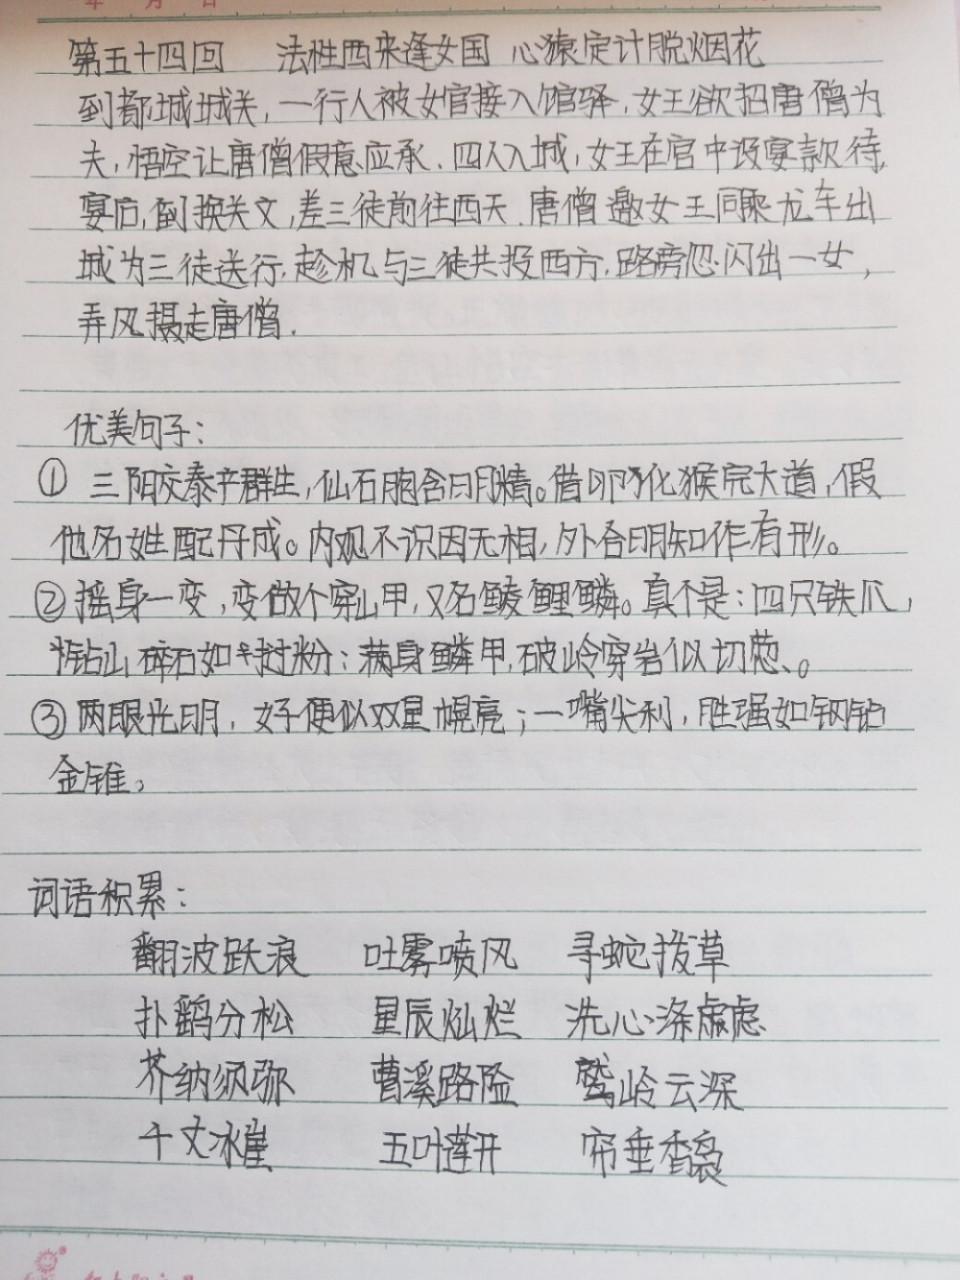 年 月 日
第五十四回 法性西来逢女国 心猿定计脱烟花
到都城城关，一行人被女官接入馆驿，女王欲招唐僧为
夫，悟空让唐僧假意应承．四人入城，女王在宫中设宴款待，
宴后，倒换关文，差三徒前往西天．唐僧邀女王同乘龙车出
城为三徒送行，趁机与三徒共投西方，路旁忽闪出一女，
弄风摄走唐僧．
优美句子：
① 三阳交泰产群生，仙石胞含日月精。借卵化猴完大道，假
他名姓配丹成。内观不识因无相，外合明知作有形。
②摇身一变，变做个穿山甲，又名鲮鲤鳞。真个是：四只铁爪，
钻山碎石如挝粉；满身鳞甲，破岭穿岩似切葱、。
③两眼光明，好便似双星幌亮；一嘴尖利，胜强如钢钻
金锥。
词语积累：
翻波跃浪 吐雾喷风 寻蛇拨草
扑鹞分松 星辰灿烂 洗心涤虑
芥纳须弥 曹溪路险 鹫岭云深
千丈冰崖 五叶莲开 帘垂香袅